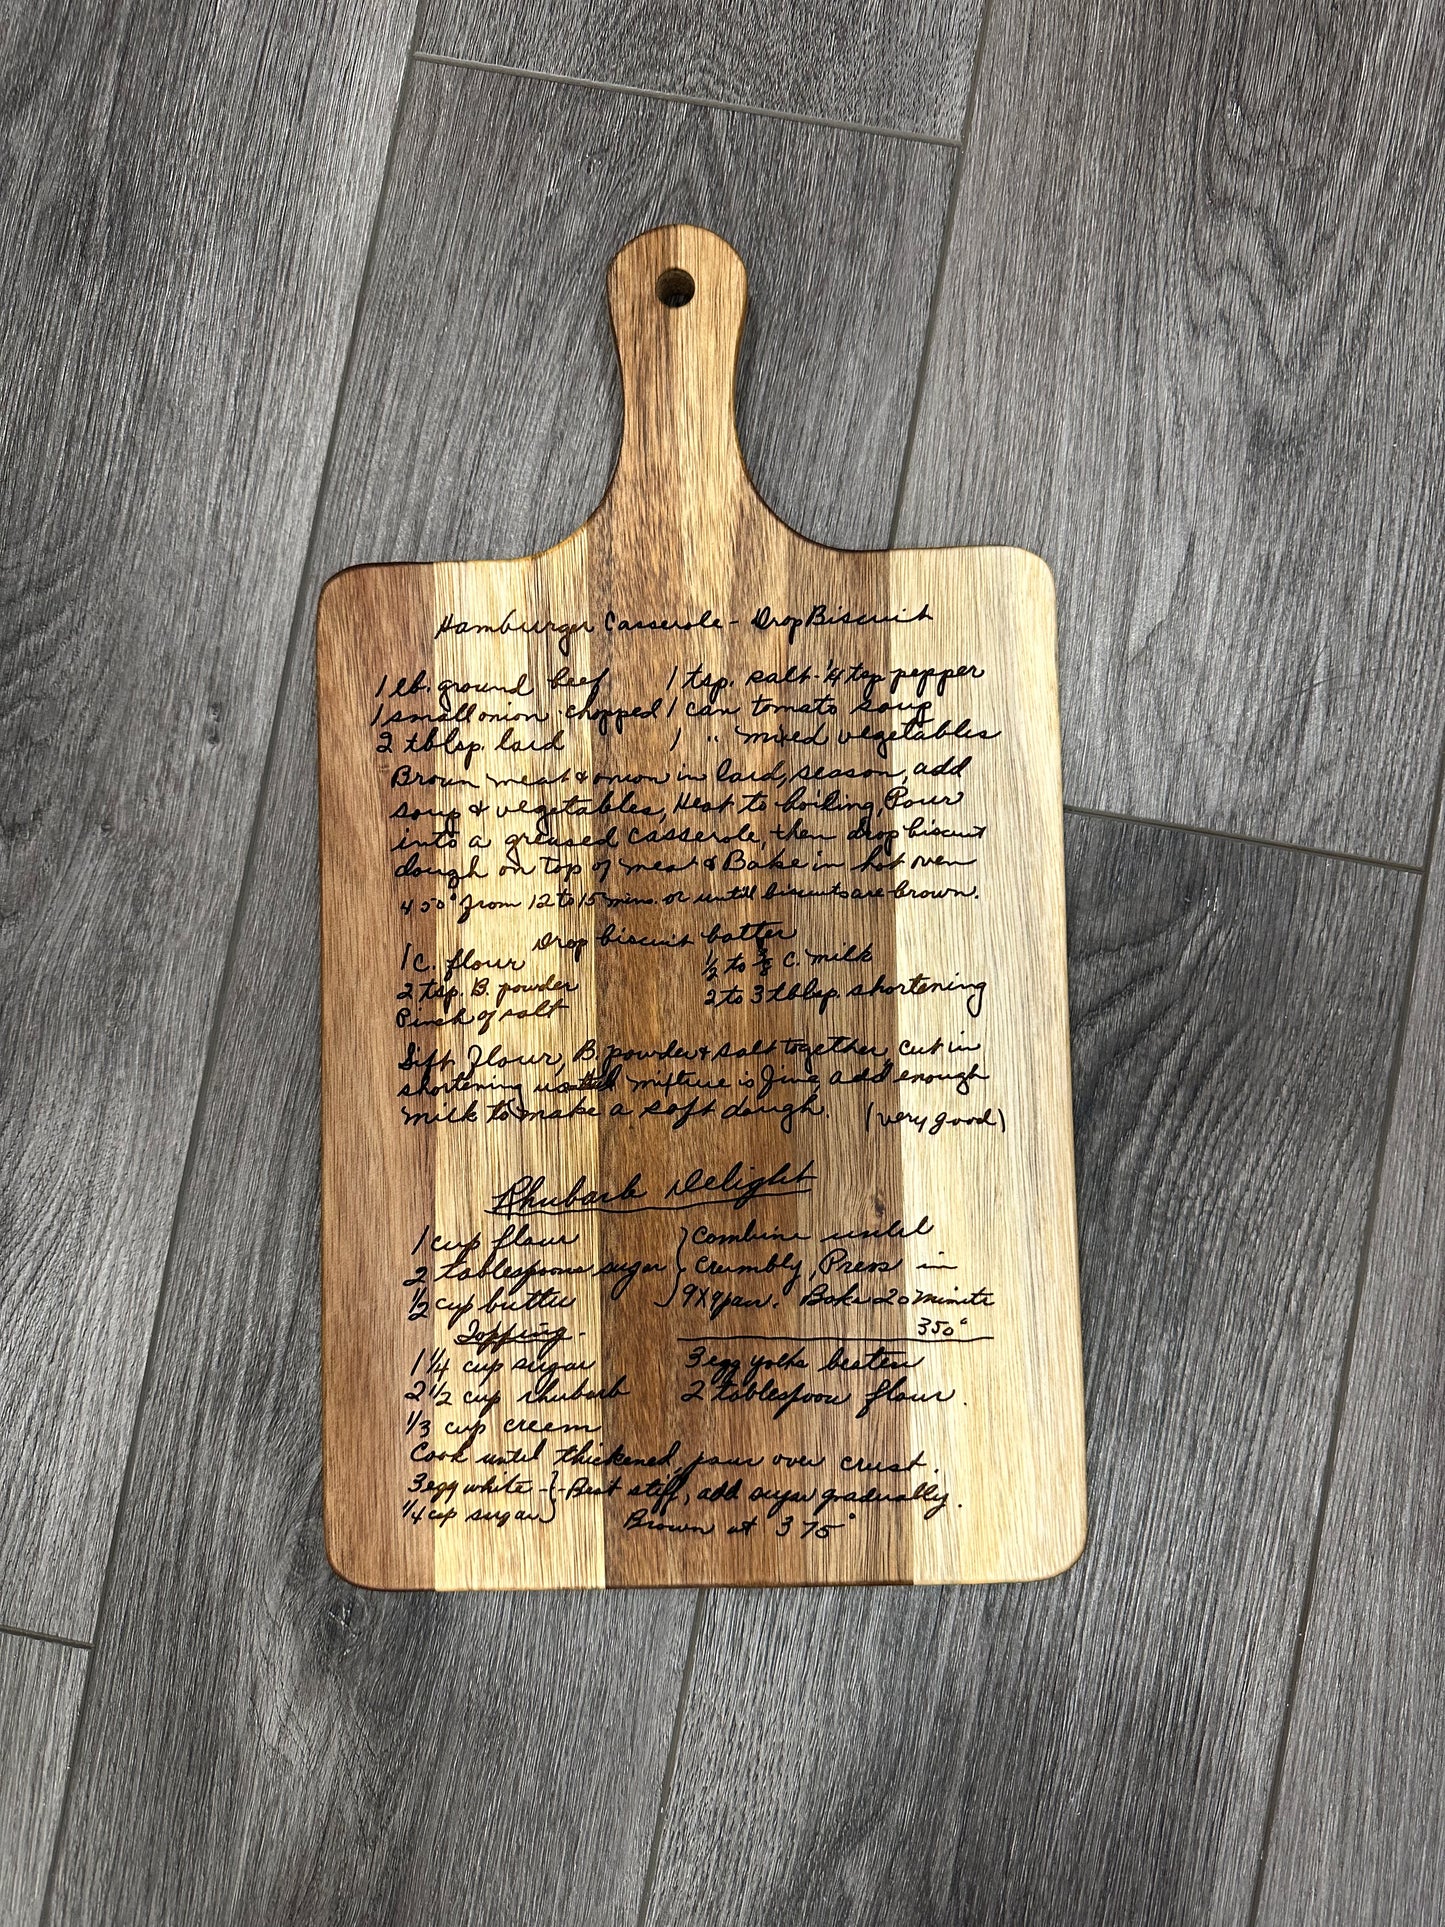 Hamburger Casserole - Drop Biscuit
1 lb. ground beef 1 tsp. salt - 1/4 tsp pepper
1 small onion chopped 1 can tomato soup
2 tblsp. lard 1 " mixed vegetables
Brown meat & onion in lard, season, add
soup & vegetables, Heat to boiling, Pour
into a greased casserole, then drop biscuit
dough on top of meat & Bake in hot oven
450° from 12 to 15 mins. or until biscuits are brown.
Drop biscuit batter
1 c. flour 1/2 to 5/8 c. milk
2 tsp. B. powder 2 to 3 tblsp. shortening
Pinch of salt
Sift Flour, B. powder & salt together, cut in
shortening until mixture is fine, add enough
milk to make a soft dough. (very good)
Rhubarb Delight
1 cup flour } Combine until
2 tablespoons sugar } Crumbly, Press in
1/2 cup butter } 9x9 pan. Bake 20 minute
Topping - 350°
1 1/4 cup sugar 3 egg yolks beaten
2 1/2 cup rhubarb 2 tablespoon flour.
1/3 cup creem
Cook until thickened, pour over crust.
3 egg white - } - Beat stiff, add sugar gradually.
1/4 cup sugar } Brown at 375°